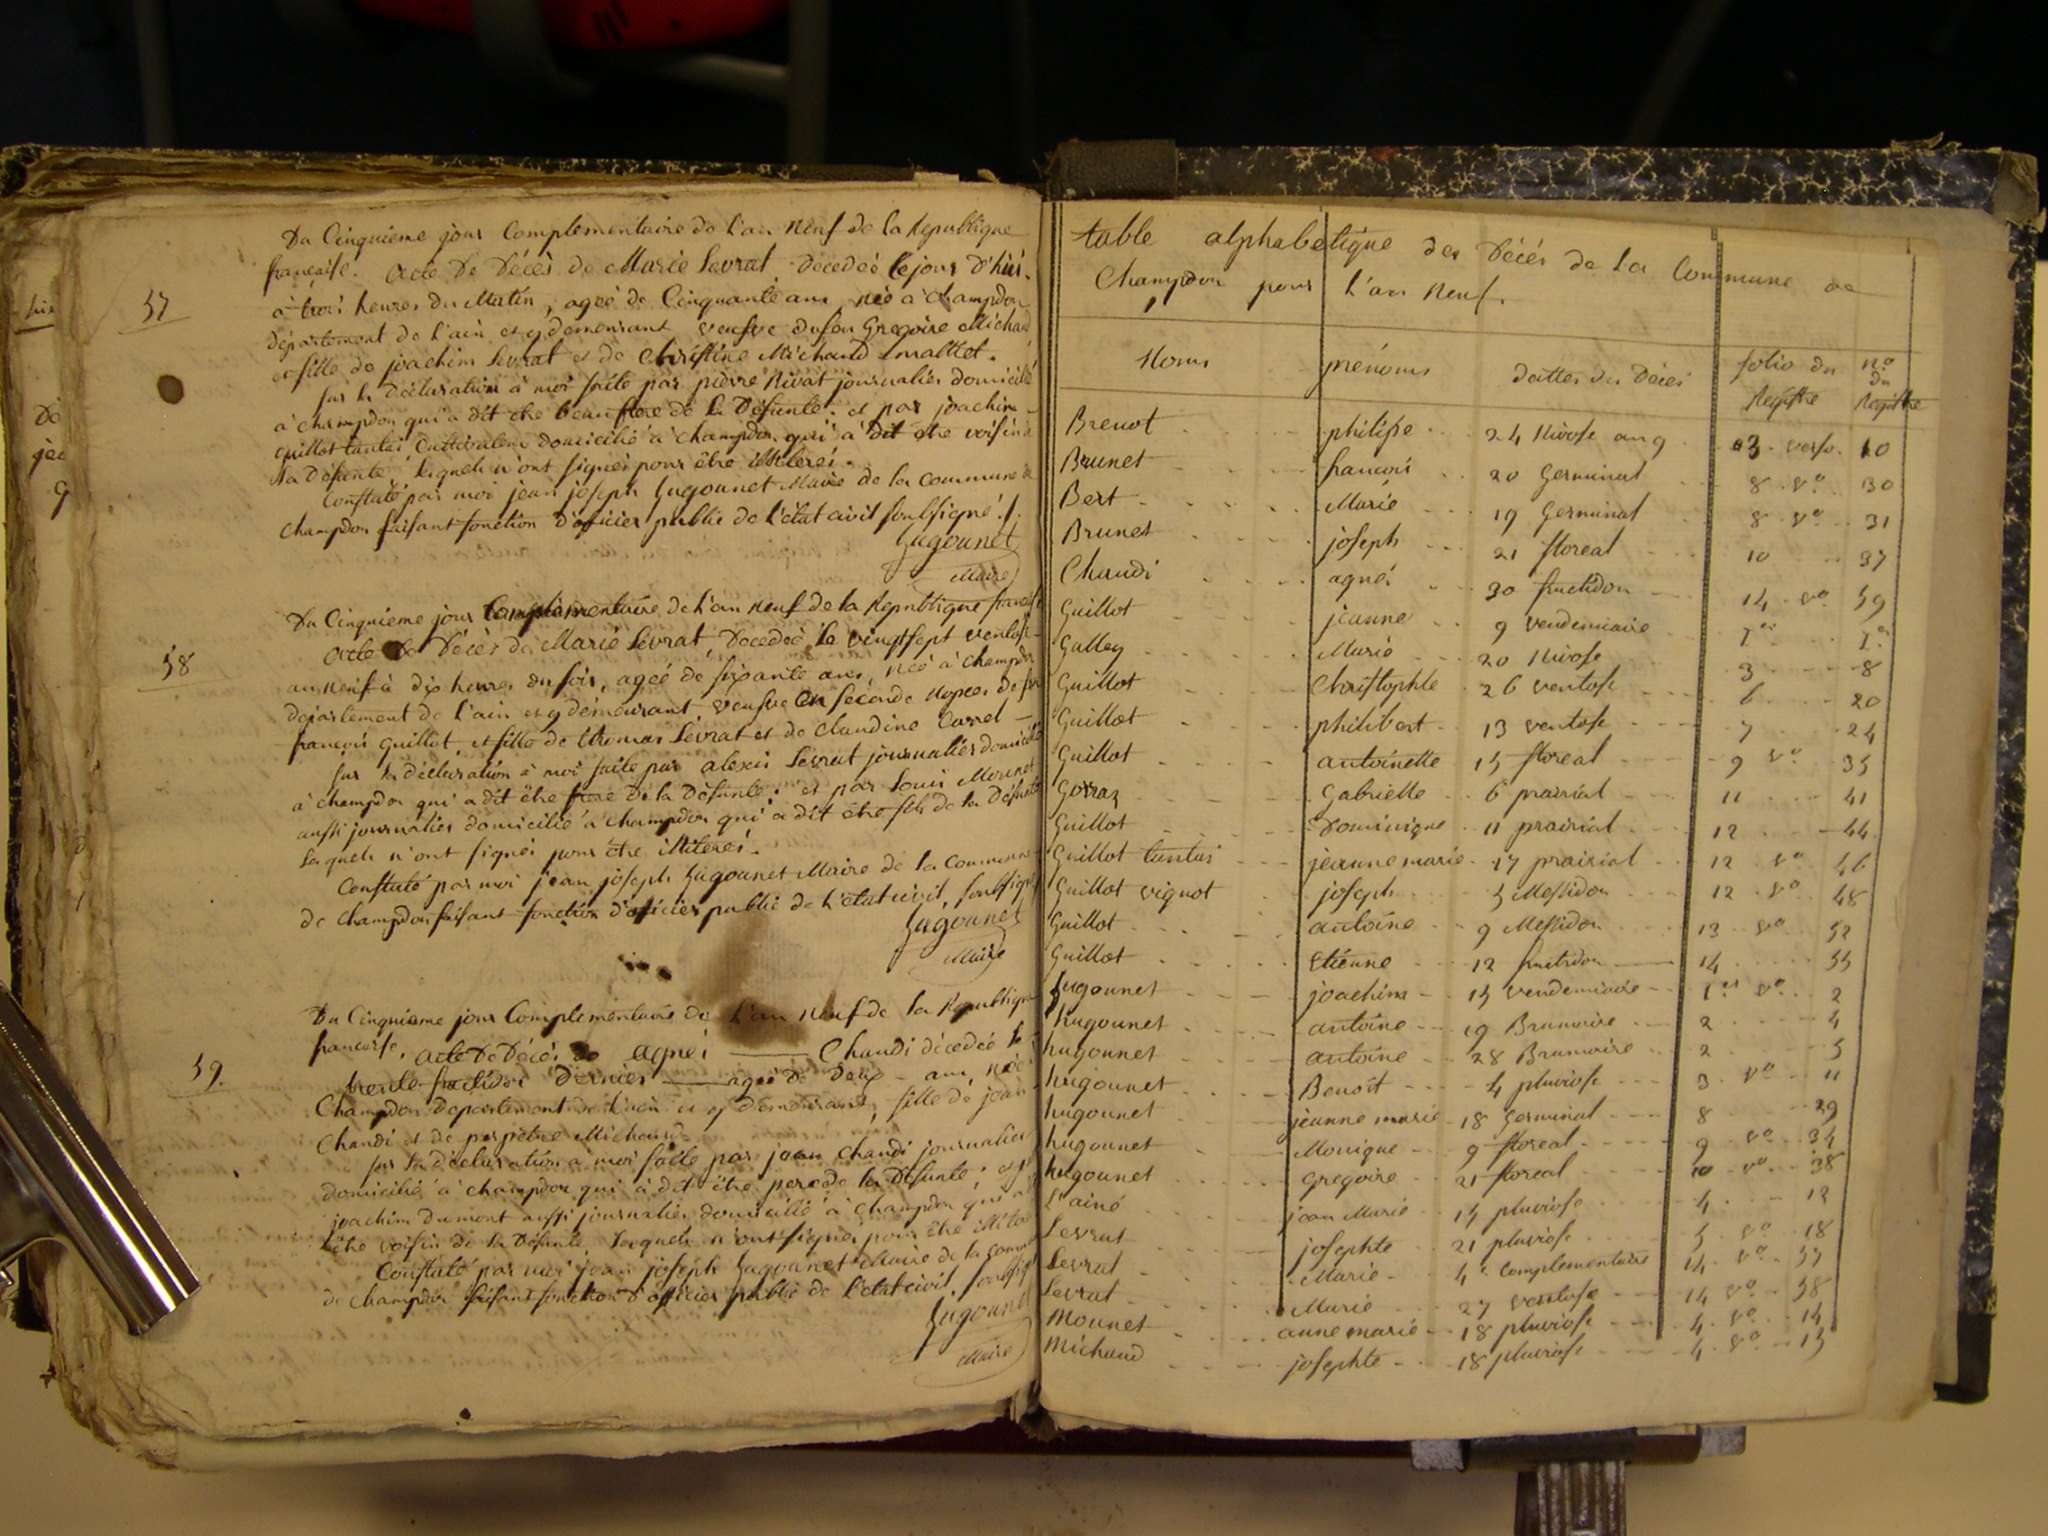 57
Du Cinquieme jour Complementaire de l'an neuf de la Republique
française. Acte de Décès de Marie Sevrat décedée le jour d'hiér
à trois heures du Matin, ageé de Cinquante ans, née à champdor
département de l'ain et y demeurant veufve du feu Gregoire Michaud
et fille de joachim Sevrat et de Christine Michaud maillet.
sur la déclaration à moi faite par pierre Rivat journalier domicilié
à champdor qui a dit etre beaufrere de la Défunte; et par joachim
guillot tantai Cultivateur domicilié à champdor qui à dit etre voisin à
la défunte, lequels n'ont signés pour être illiterés.
Constaté par moi jean joseph hugounet Maire de la commune de
champdor faisant fonction d'officier public de l'état civil soubsigné.
hugounet
Maire
58
Du Cinquieme jour Complémentaire de l'an neuf de la Republique francaise
acte de Décès de Marie Sevrat, Décedeé le vingtsept ventose
an neuf à dix heures du soir, ageé de soixante ans, née à champdor
département de l'ain et y demeurant veufve en seconde nopces de feu
francois guillot, et fille de thomas Sevrat et de claudine Carrel
sur la déclaration à moi faite par alexis Sevrat journalier domicilié
à champdor qui a dit être frere de la Défunte; et par louis Mounet
aussi journalier domicilié à champdor qui a dit être fils de la Défunte
lequels n'ont signés pour être illiterés.
Constaté par moi jean joseph hugounet Maire de la Commune
de champdor faisant fonction d'officier public de l'état civil, soubsigné
hugounet
Maire
59.
Du Cinquieme jour Complementaire de l'an neuf de la Republique
francaise, acte de Décès de agnés Chaudi décedeé le
trente fructidor dernier ageé de deux ans, née
Champdor département de l'ain et y demeurant, fille de jean
Chaudi et de perpetue Michaud
sur la déclaration à moi faite par jean chaudi journalier
domicilié à champdor qui à dit être pere de la Défunte; et par
joachim dumont aussi journalier domicilié à champdor qui a
être voisin de la Défunte, lequels n'ont signés pour être illite
Constaté par moi jean joseph hugounet Maire de la comm
de champdor faisant fonction d'officier public de l'état civil, soubsig
hugounet
Maire
table alphabetique des Décés de la Commune de
Champdor pour l'an neuf.
Noms prénoms dattes des Décés folio du Registre no du Registre
Brenot philipe 24 Nivose an 9 3 verso 10
Brunet francois 20 Germinal 8 vo 30
Bert Marie 19 Germinal 8 vo 31
Brunet joseph 21 floreal 10 37
Chaudi agnés 30 fructidor 14 vo 59
Guillot jeanne 9 vendemiaire 1er 1er
Galley Marie 20 Nivose 3 8
Guillot Christophle 26 ventose 6 20
Guillot philibert 13 ventose 7 24
Guillot antoinette 15 floreal 9 vo 35
Gorraz Gabrielle 6 prairial 11 41
Guillot Dominique 11 prairial 12 44
Guillot tantai jeanne marie 17 prairial 12 vo 46
Guillot vignot joseph 5 Messidor 12 vo 48
Guillot antoine 9 Messidor 13 vo 52
Guillot Etienne 12 fructidor 14 55
hugounet joachim 15 vendemiaire 1er vo 2
hugounet antoine 19 Brumaire 2 4
hugounet antoine 28 Brumaire 2 5
hugounet Benoît 4 pluviose 3 vo 11
hugounet jeanne marie 18 Germinal 8 29
hugounet Monique 9 floreal 9 vo 34
hugounet Gregoire 21 floreal 10 vo 38
l'ainé jean Marie 15 pluviose 4 12
Sevrat josephte 21 pluviose 5 vo 18
Sevrat Marie 4e Complementaire 14 vo 57
Sevrat Marie 27 ventose 14 vo 58
Mounet anne marie 18 pluviose 4 vo 14
Michaud josephte 18 pluviose 4 vo 15